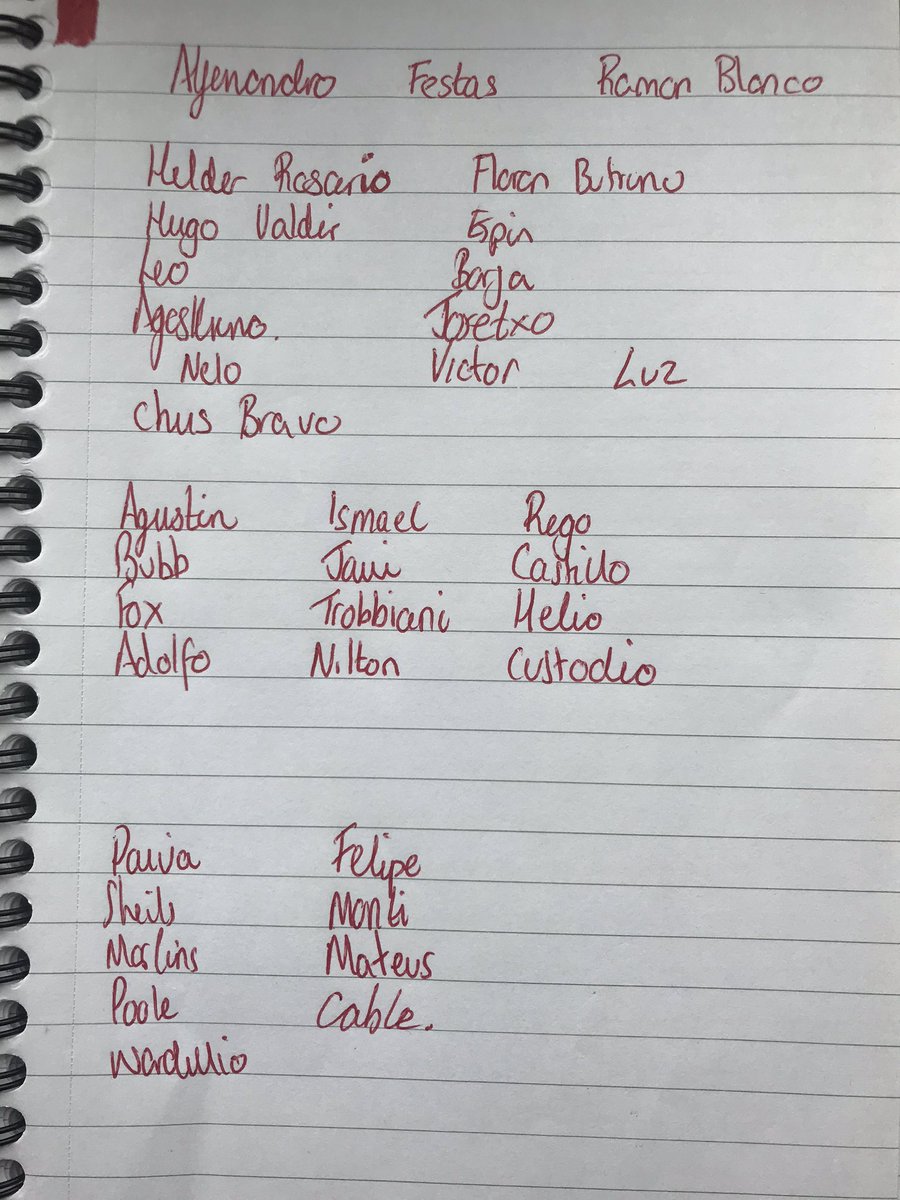 Festas Ramon Blanco
Helder Rosario Floren Butruno
Hugo Valdir Espin
Leo Borja
Josetxo
Nelo Victor Luz
Chus Bravo
Agustin Ismael Rego
Bubb Javi Castillo
Fox Trobbiani Helio
Adolfo Nilton Custodio
Paiva Felipe
Monti
Martins Mateus
Poole Cable.